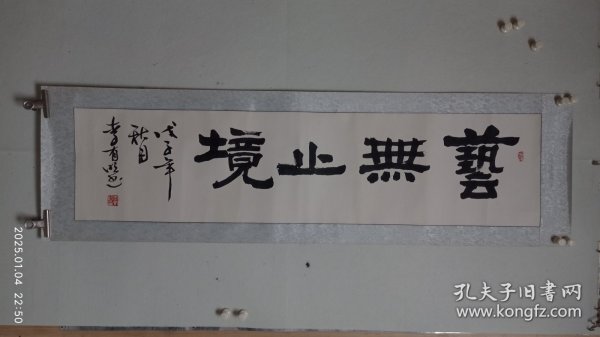 藝無止境
戊子年
秋月
2025.01.04 22:50
孔夫子旧书网
www.kongfz.com